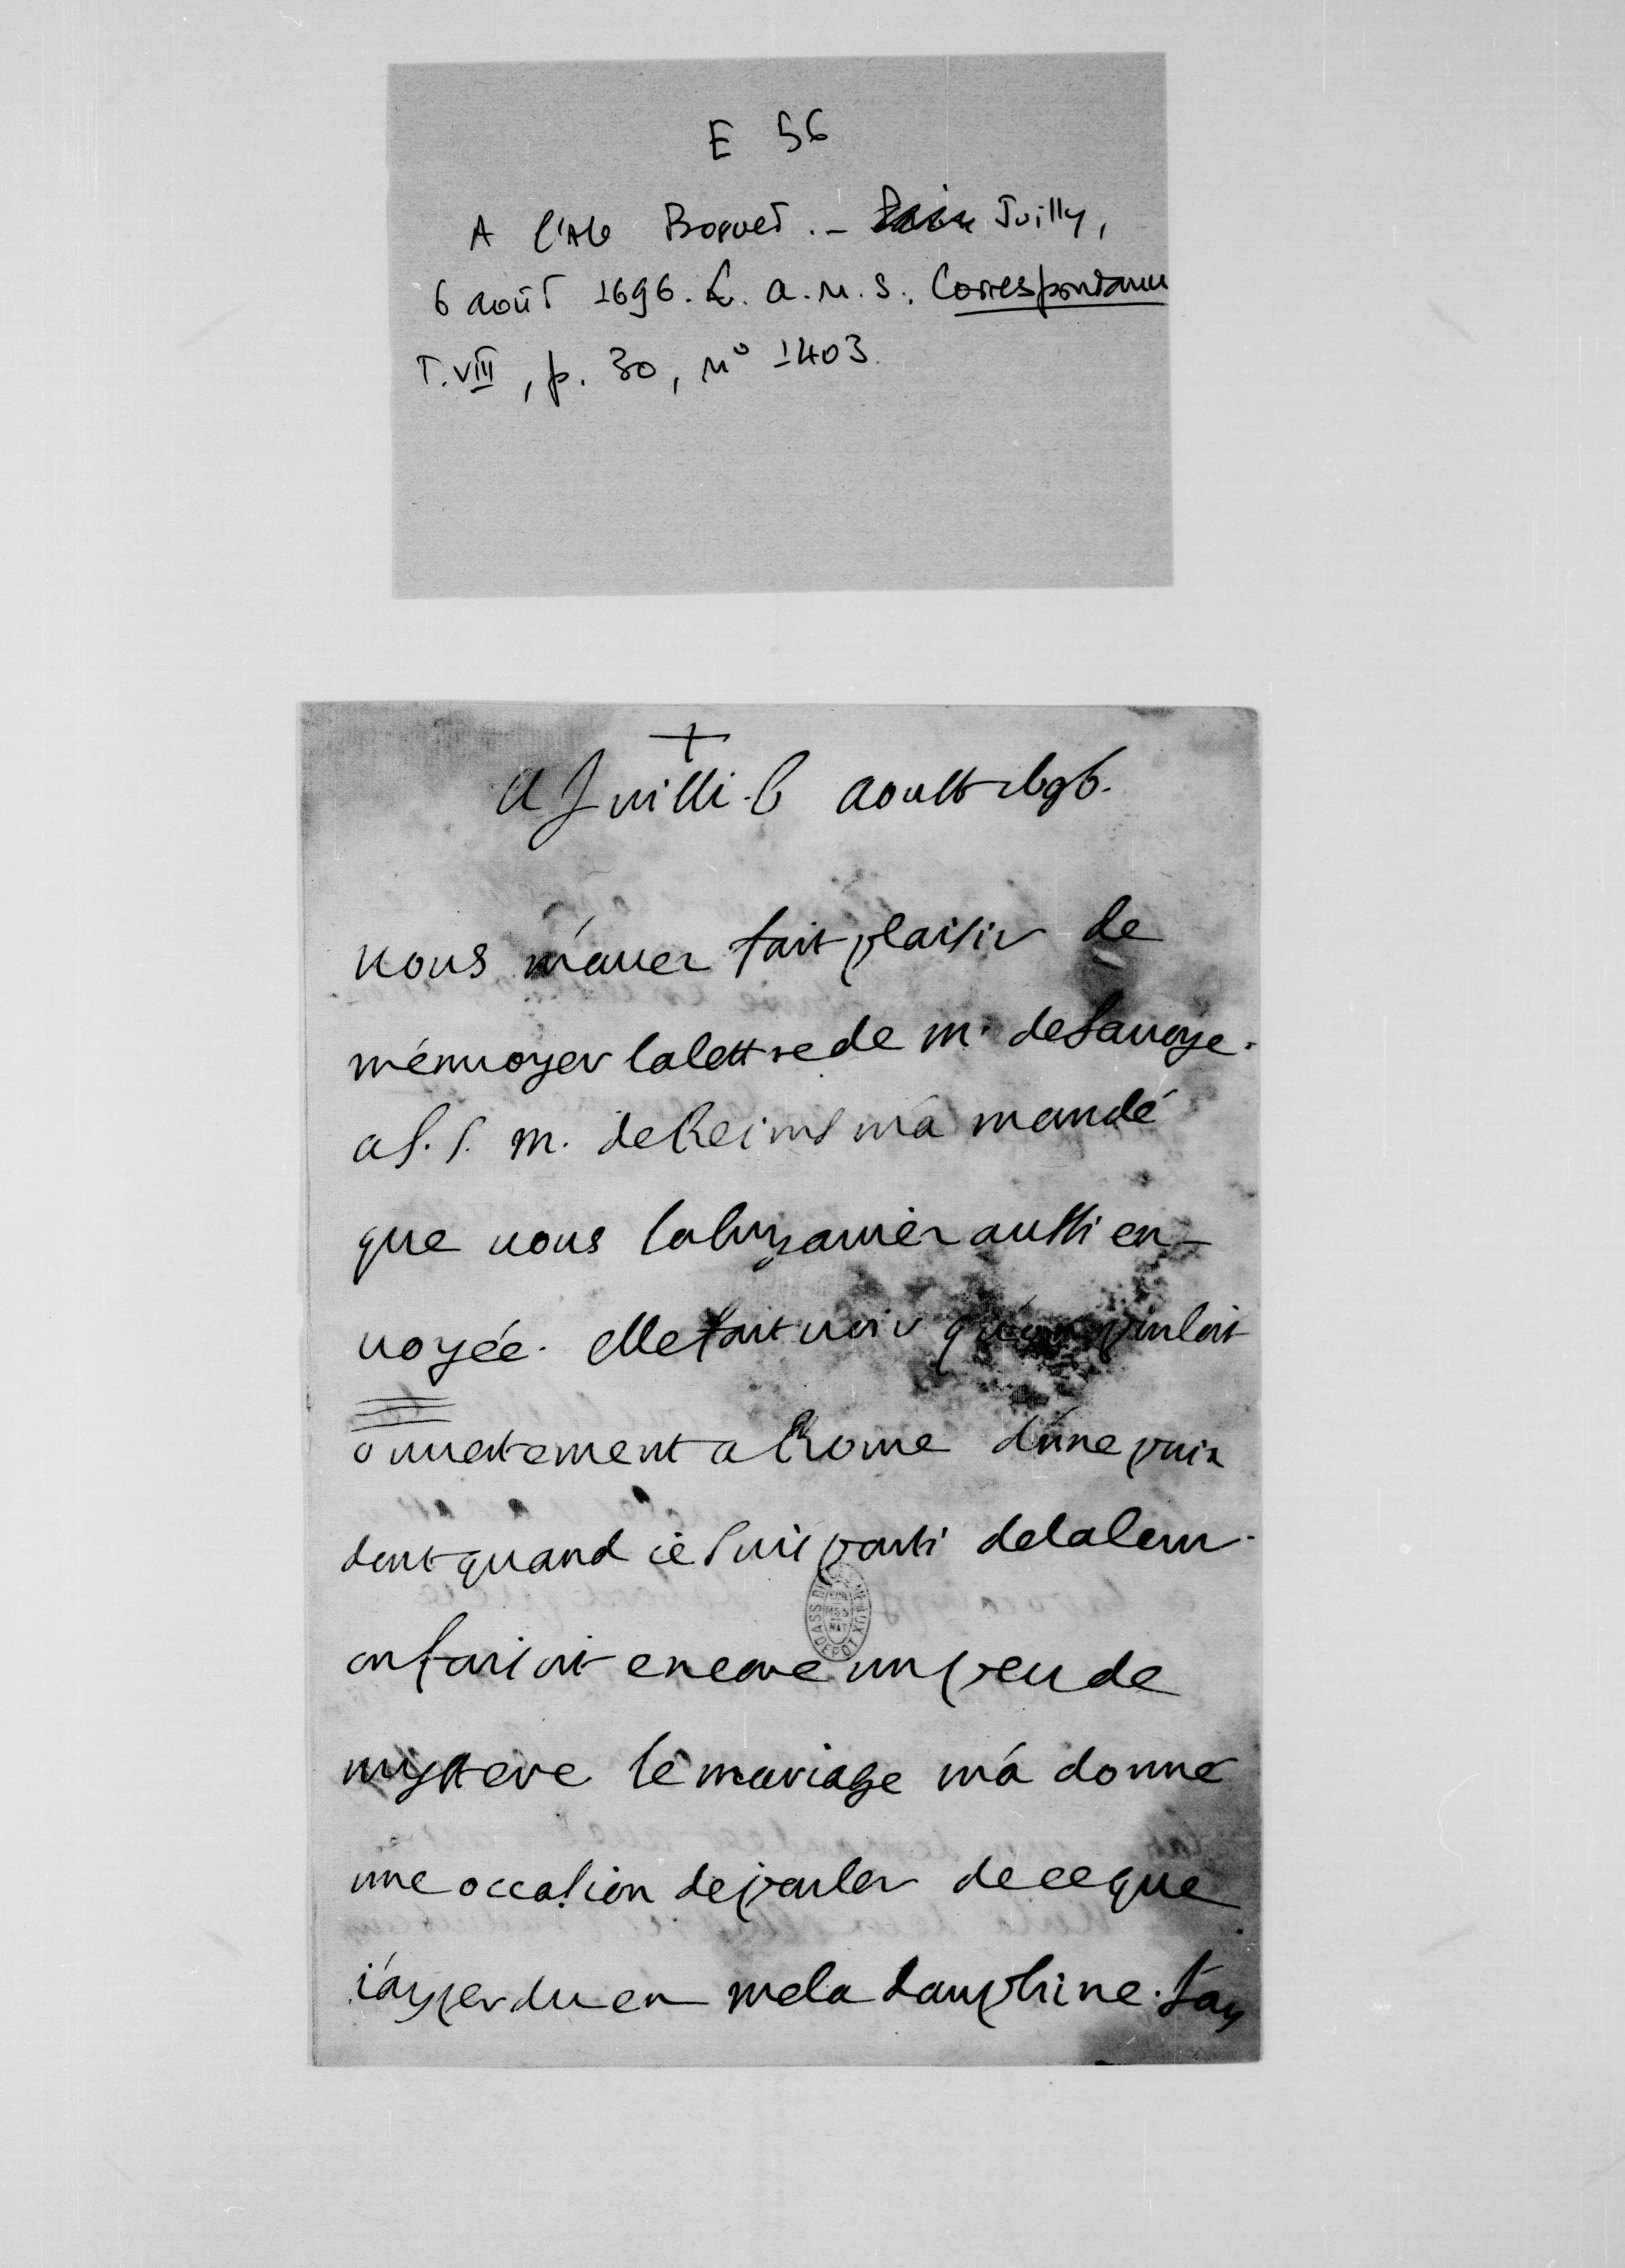 E 56
A l'Abé Bossuet. - Juilly,
6 août 1696. L. a. n. s. Correspondance
T. VIII, p. 30, n° 1403.
+
A Juilli. 6 aoust 1696.
Vous m'auez fait plaisir de
m'enuoyer la lettre de M. de Sauoye.
a S. S. M. de Reims m'a mandé
que vous la luy auiez aussi en-
uoyée. elle fait voir qu'on parloit
ouuertement a Rome d'une paix
dont quand ie suis parti de la cour
on faisoit encore un peu de
mystere le mariage m'a donné
une occasion de parler de ce que
i'ay perdu en me la dauphine. j'ay